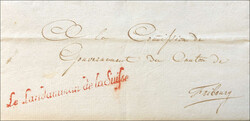 A la Comission de
Gouvernement du Canton de
Fribourg
Le Landammann de la Suisse